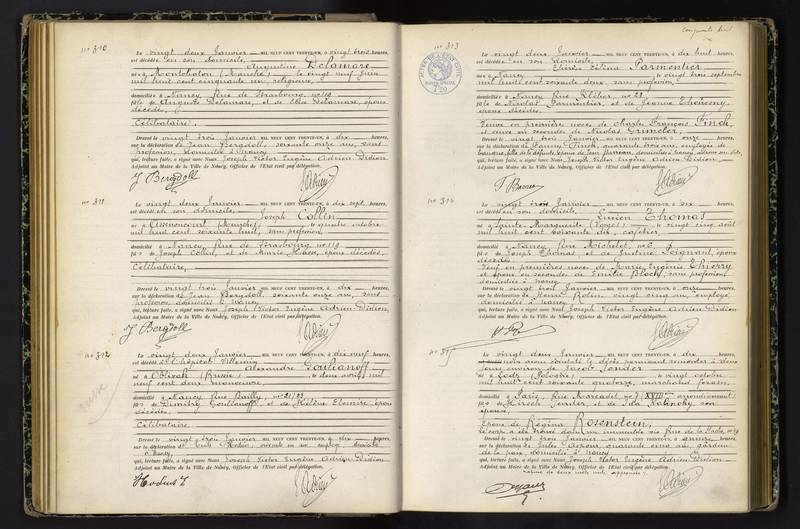 No 310
Le vingt deux Janvier MIL NEUF CENT TRENTE-UN, à vingt trois heures,
est décédée en son domicile,
Augustine Delamare
née à Montchaton (Manche) le vingt neuf Juin
mil huit cent cinquante un, religieuse,
domiciliée à Nancy, Rue de Strasbourg, no 119
fille de Auguste Delamare, et de Delamare, époux
décédés,
Célibataire.
Dressé le vingt trois Janvier, MIL NEUF CENT TRENTE-UN, à dix heures,
sur la déclaration de Jean Bergdoll, soixante onze ans, sans
profession, domicilié à Nancy
qui, lecture faite, a signé avec Nous Joseph Victor Eugène Adrien Didion
Adjoint au Maire de la Ville de Nancy, Officier de l'État civil par délégation.
J Bergdoll
311
Le vingt deux Janvier MIL NEUF CENT TRENTE-UN, à dix sept heures,
est décédé en son domicile, Joseph Collin
né à le quatre octobre
mil huit cent soixante huit, sans profession
domicilié à Nancy, Rue de Strasbourg no 119
fils de Joseph Collin, et de Marie époux décédés,
Célibataire.
Dressé le vingt trois Janvier, MIL NEUF CENT TRENTE-UN, à dix heures,
sur la déclaration de Jean Bergdoll, soixante onze ans, sans
profession domicilié à Nancy
qui, lecture faite, a signé avec Nous Joseph Victor Eugène Adrien Didion
Adjoint au Maire de la Ville de Nancy, Officier de l'État civil par délégation.
J Bergdoll
No 312
Le vingt deux Janvier MIL NEUF CENT TRENTE-UN, à dix neuf heures,
est décédé à l'hôpital Villemin
Alexandre Goulianoff
né à (Russie) le deux avril mil
neuf cent deux
domicilié à Nancy Rue Bailly, no
fils de Dimitry Goulianoff et de Hélène époux
décédés
Célibataire
Dressé le vingt trois Janvier MIL NEUF CENT TRENTE-UN, à dix heures,
sur la déclaration de Emile
à Nancy
qui, lecture faite, a signé avec Nous Joseph Victor Eugène Adrien Didion
Adjoint au Maire de la Ville de Nancy, Officier de l'État civil par délégation.
No 313
Le vingt deux Janvier MIL NEUF CENT TRENTE-UN, à dix huit heures,
est décédée en son domicile,
Parmentier
née à Nancy le vingt trois septembre
mil huit cent soixante deux, sans profession,
domiciliée à Nancy Rue Kléber, no 28
fille de Nicolas Parmentier, et de Jeanne
décédés,
Veuve en premières noces de Charles François Finck,
et veuve en secondes de Nicolas
Dressé le vingt trois Janvier, MIL NEUF CENT TRENTE-UN, à onze heures,
sur la déclaration de Finck, quarante trois ans, employée de
qui, lecture faite, a signé avec Nous Joseph Victor Eugène Adrien Didion
Adjoint au Maire de la Ville de Nancy, Officier de l'État civil par délégation.
No 314
Le vingt trois Janvier MIL NEUF CENT TRENTE-UN, à six heures,
est décédé en son domicile,
Lucien Thomas
né à Sainte Marguerite (Vosges) le vingt cinq août
mil huit cent soixante dix, cafetier,
domicilié à Nancy, Rue Michelet, no 6,
fils de Joseph Thomas, et de Justine époux
décédés
Veuf en premières noces de Marie Eugénie Thierry
et époux en secondes de Emilie Bloch, sans profession
domiciliée à Nancy
Dressé le vingt trois Janvier MIL NEUF CENT TRENTE-UN, à onze heures,
sur la déclaration de Henri Robin, vingt cinq ans, employé
domicilié à Nancy
qui, lecture faite, a signé avec Nous Joseph Victor Eugène Adrien Didion
Adjoint au Maire de la Ville de Nancy, Officier de l'État civil par délégation.
No 315
Le vingt deux Janvier MIL NEUF CENT TRENTE-UN, à dix heures,
nous avons constaté le décès paraissant remonter à deux
jours environ de Jacob Jonder
né à Lodz (Pologne) le vingt octobre
mil huit cent soixante quatorze, marchand forain,
domicilié à Paris, Rue Marcadet no 7 (XVIII arrondissement)
fils de Hirsch Jonder, et de Ida son
épouse,
Epoux de Régina Rosenstein,
Dressé le vingt trois Janvier MIL NEUF CENT TRENTE-UN, à heures,
sur la déclaration de Jules quarante cinq ans, gardien
de la paix, domicilié à Nancy
qui, lecture faite, a signé avec Nous Joseph Victor Eugène Adrien Didion
Adjoint au Maire de la Ville de Nancy, Officier de l'État civil par délégation.